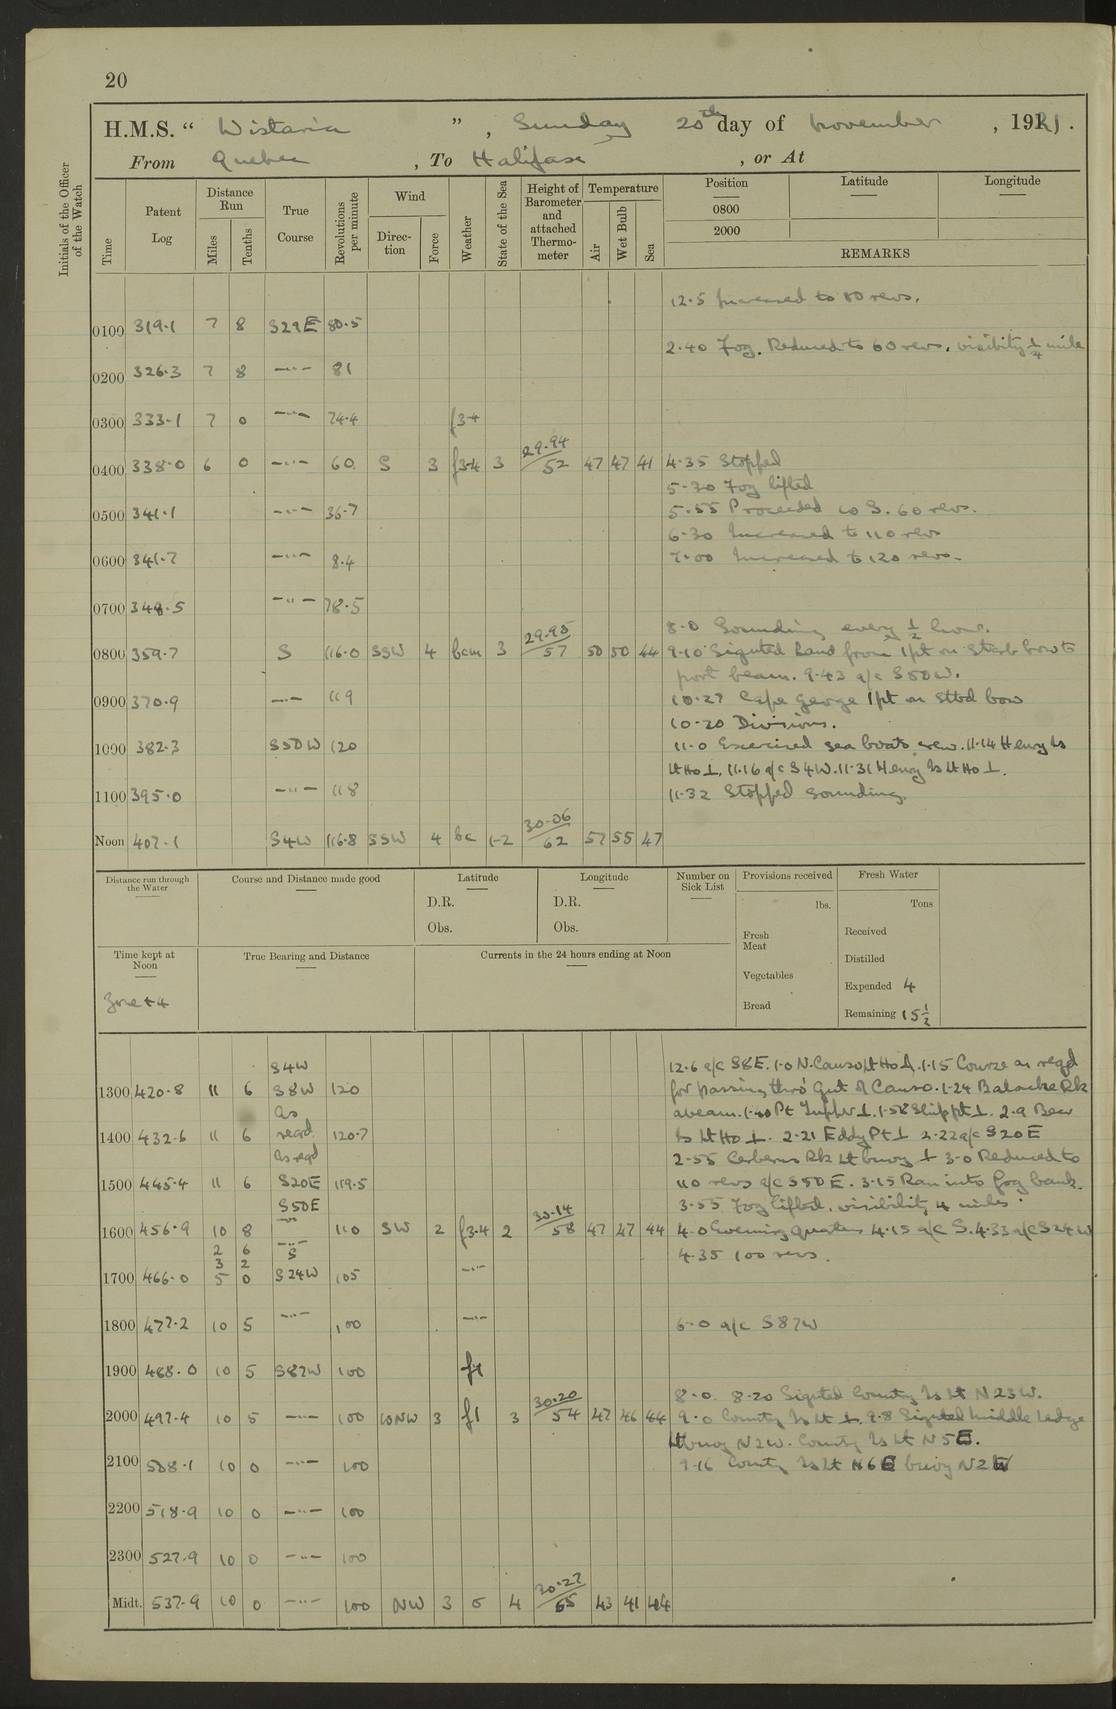 20
H.M.S. " Wistaria " , Sunday 20th day of November , 192 .
From Quebec , To Halifax , or At
Initials of the Officer of the Watch
Time
Patent Log
Distance Run
Miles
Tenths
True Course
Revolutions per minute
Wind
Direction
Force
Weather
State of the Sea
Height of Barometer and attached Thermometer
Temperature
Air
Wet Bulb
Sea
Position
Latitude
Longitude
0800
2000
REMARKS
12.5 Increased to 80 revs.
0100 319.1 7 8 S29E 80.5
2.40 Fog. Reduced to 60 revs. visibility ¼ mile
0200 326.3 7 8 —"— 81
0300 333.1 7 0 —"— 74.4 f3-4
0400 338.0 6 0 —"— 60. S 3 f3-4 3 29.94/52 47 47 41 4.35 Stopped
5.30 Fog lifted
0500 341.1 —"— 36.7 5.55 Proceeded co S. 60 revs.
6.30 Increased to 110 revs
0600 341.7 —"— 8.4 7.00 Increased to 120 revs.
0700 348.5 —"— 78.5
8.0 Sounding every ½ hour.
0800 359.7 S 116.0 SSW 4 bcm 3 29.95/57 50 50 44 9.10 Sighted land from 1pt on Starb bow to
port beam. 9.43 a/c S50W.
0900 370.9 —"— 119 10.27 Cape George 1pt on Stbd bow
10.20 Divisions.
1000 382.3 S50W 120 11.0 Exercised sea boats crew. 11.14 Henry Is
Lt Ho ⊥. 11.16 a/c S4W. 11.31 Henry Is Lt Ho ⊥.
1100 395.0 —"— 118 11.32 Stopped sounding.
Noon 407.1 S4W 116.8 SSW 4 bc 1-2 30.06/62 57 55 47
Distance run through the Water
Course and Distance made good
Latitude
D.R.
Obs.
Longitude
D.R.
Obs.
Number on Sick List
Provisions received
lbs.
Fresh Meat
Vegetables
Bread
Fresh Water
Tons
Received
Distilled
Expended 4
Remaining 15½
Time kept at Noon
Zone +4
True Bearing and Distance
Currents in the 24 hours ending at Noon
S4W 12.6 a/c S8E. 1.0 N. Canso Lt Ho . 1.15 Course as reqd
1300 420.8 11 6 S8W 120 for passing thro' Gut of Canso. 1.24 Balache Rk
As abeam. 1.40 Pt Tupper ⊥. 1.58 Ship pt ⊥. 2.9 Bear
1400 432.6 11 6 reqd. 120.7 Is Lt Ho ⊥. 2.21 Eddy Pt ⊥ 2.22 a/c S20E
As reqd 2.55 Cerberus Rk Lt buoy ⊥ 3.0 Reduced to
1500 445.4 11 6 S20E 119.5 110 revs a/c S50E. 3.15 Ran into fog bank.
S50E 3.55 Fog lifted. visibility 4 miles.
1600 456.9 10 8 —"— 110 SW 2 f3.4 2 30.14/58 47 47 44 4.0 Evening quarters 4.15 a/c S. 4.33 a/c S24W
2 6 —"—
3 2 S 4.35 100 revs.
1700 466.0 5 0 S24W 105 —"—
1800 477.2 10 5 —"— 100 —"— 6.0 a/c S87W
1900 488.0 10 5 S87W 100 f1
8.0. 8.20 Sighted Country Is Lt N23W.
2000 497.4 10 5 —"— 100 WNW 3 f1 3 30.20/54 47 46 44 9.0 Country Is Lt ⊥. 9.8 Sighted Middle Ledge
Lt buoy N2W. Country Is Lt N5E.
2100 508.1 10 0 —"— 100 9.16 Country Is Lt N6E buoy N2W
2200 518.9 10 0 —"— 100
2300 527.9 10 0 —"— 100
Midt. 537.9 10 0 —"— 100 NW 3 o 4 30.27/65 43 41 44